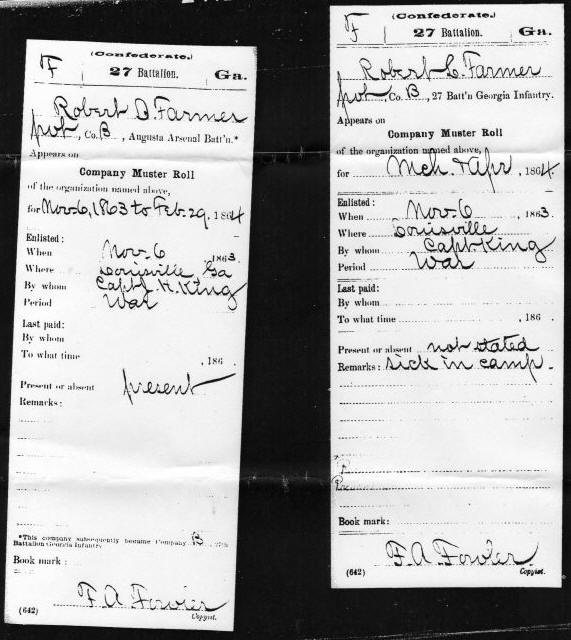 (Confederate.)
F
27 Battalion.
Ga.
Robert D. Farmer
pvt, Co. B, Augusta Arsenal Batt'n.*
Appears on
Company Muster Roll
of the organization named above,
for Nov. 6, 1863 to Feb. 29, 1864
Enlisted:
When Nov. 6 1863.
Where Louisville Ga
By whom Capt. H. King
Period War
Last paid:
By whom
To what time , 186 .
Present or absent present
Remarks:
*This company subsequently became Company B, 27th
Battalion Georgia Infantry
Book mark:
F A Fowler
(642) Copyist.
(Confederate.)
F
27 Battalion.
Ga.
Robert L. Farmer
pvt, Co. B, 27 Batt'n Georgia Infantry.
Appears on
Company Muster Roll
of the organization named above,
for Mch. & Apr, 1864.
Enlisted:
When Nov. 6, 1863.
Where Louisville
By whom Capt. King
Period War
Last paid:
By whom
To what time , 186 .
Present or absent not stated
Remarks: sick in camp.
Book mark:
F. A. Fowler
(642) Copyist.